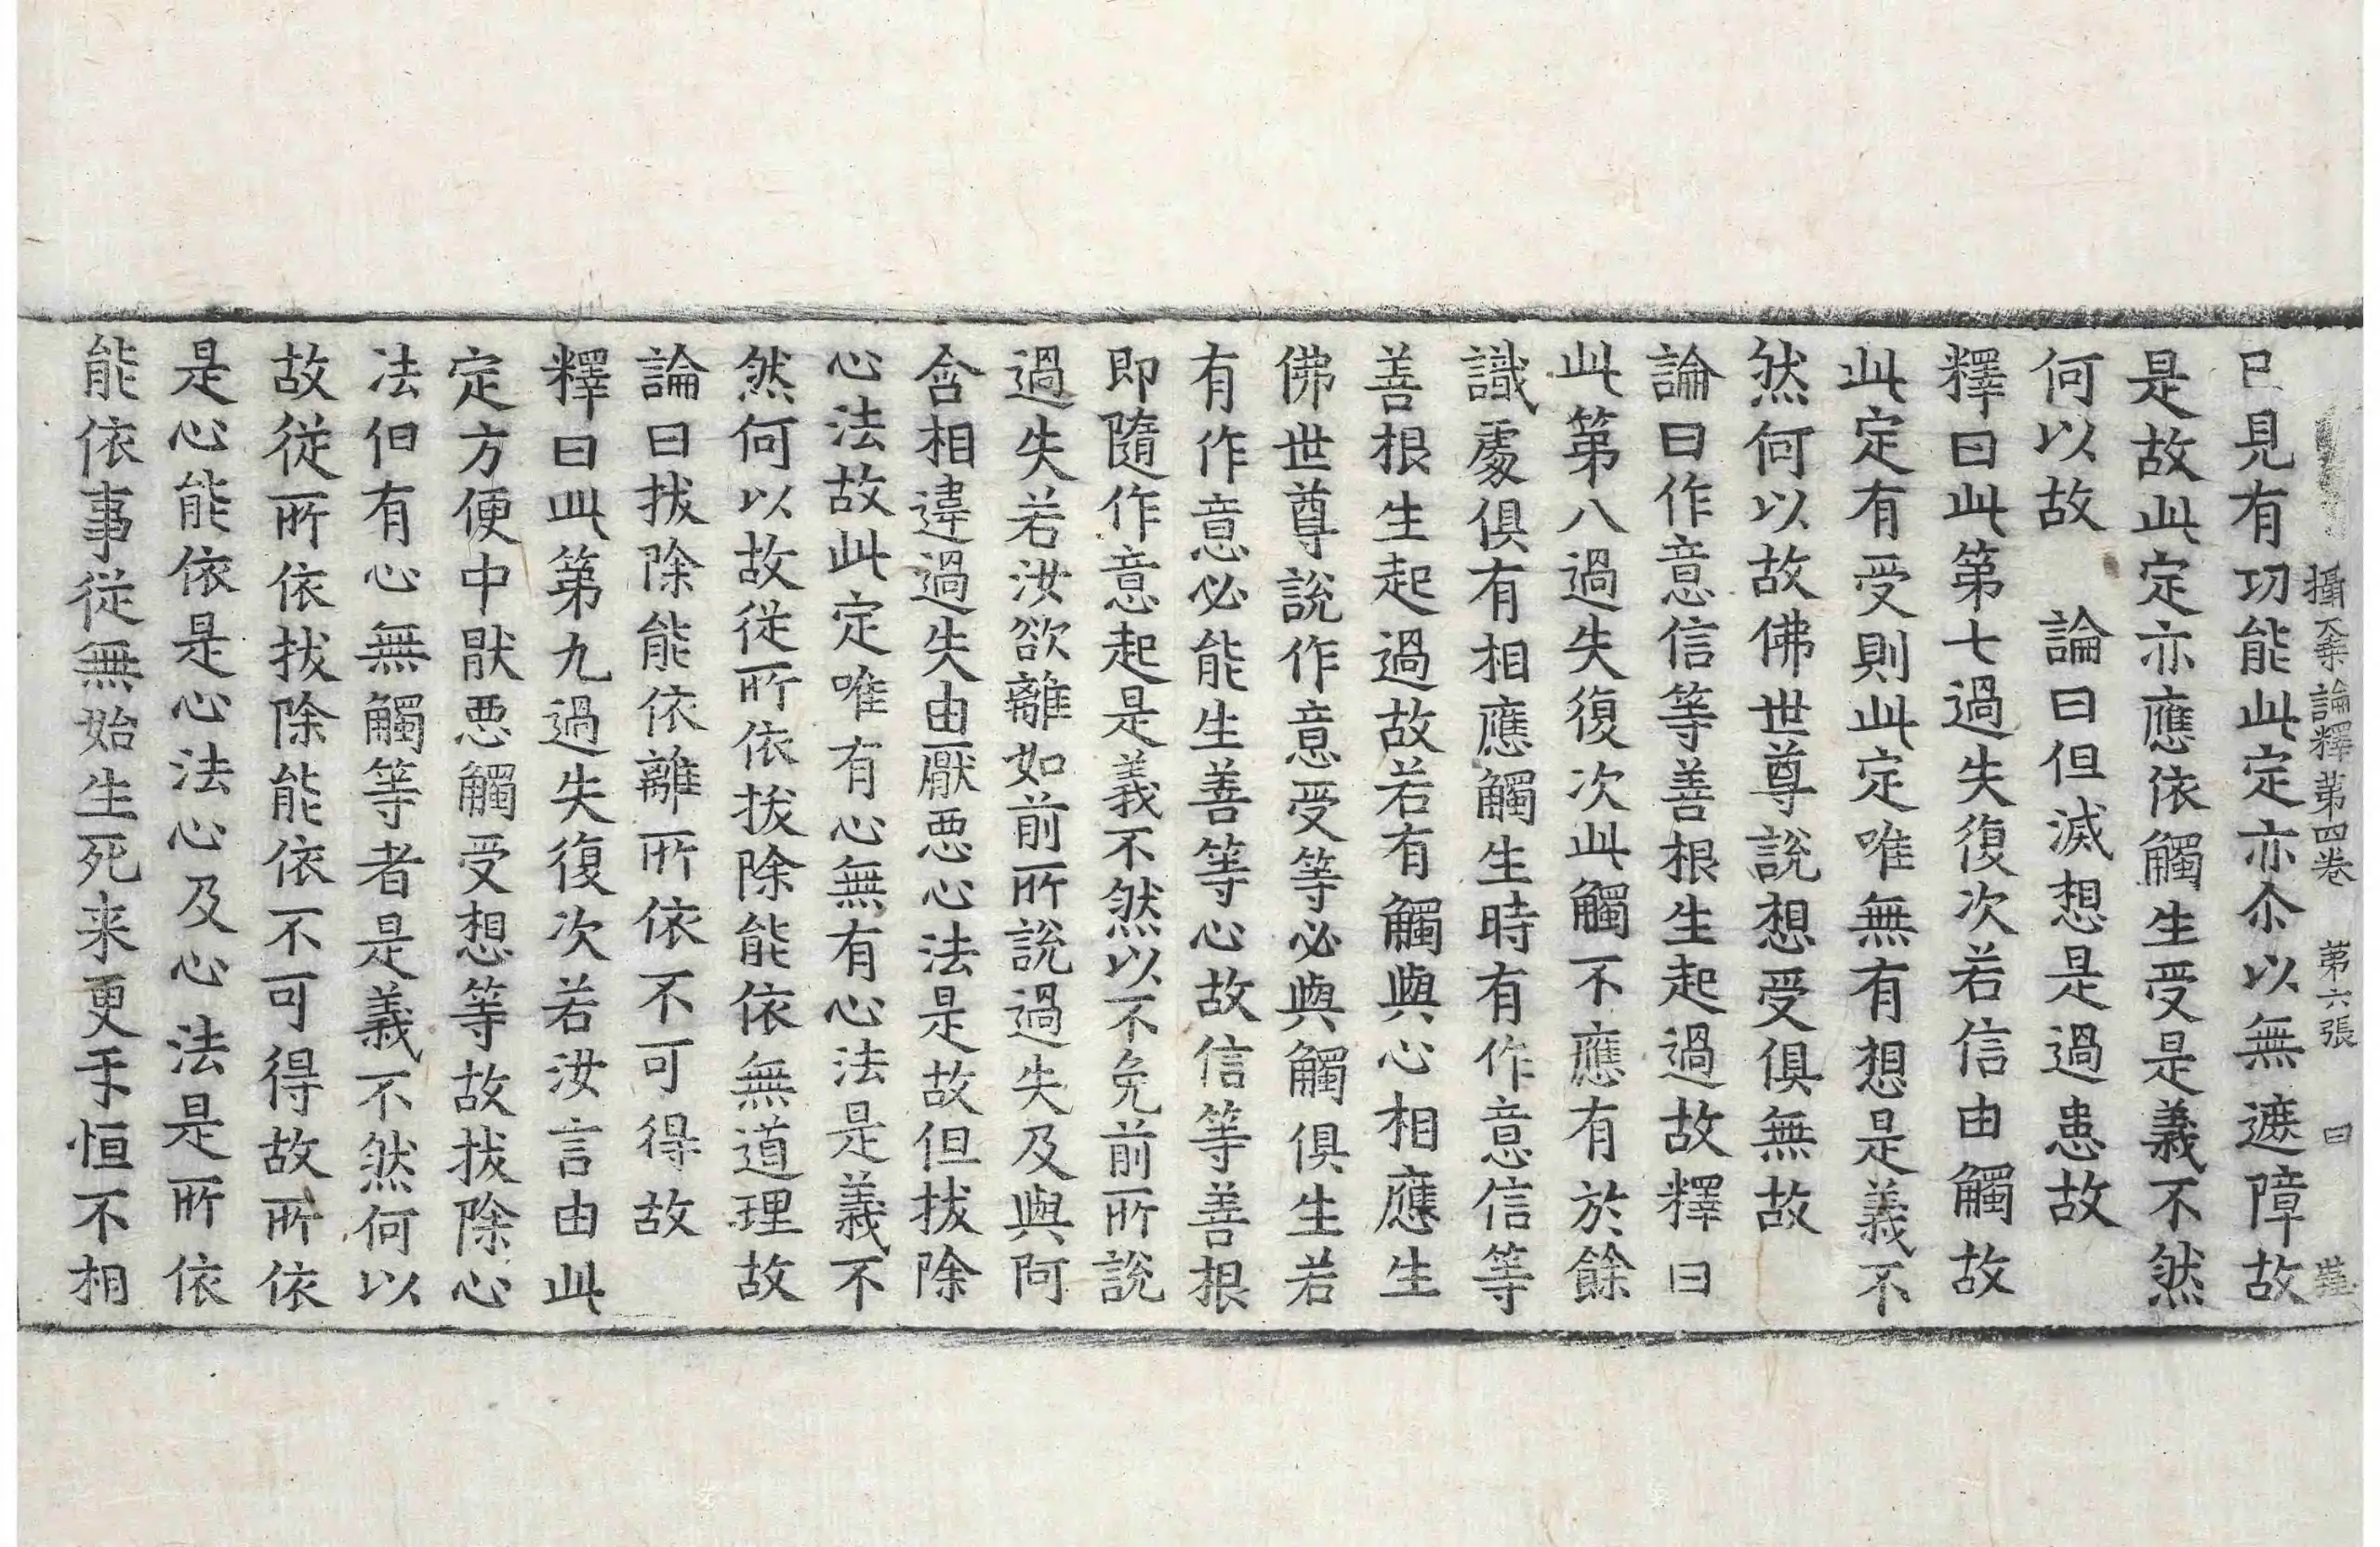 攝大乘論釋第四卷 第六張 曰
已見有功能此定亦尒以無遮障故
是故此定亦應依觸生受是義不然
何以故 論曰但滅想是過患故
釋曰此第七過失復次若信由觸故
此定有受則此定唯無有想是義不
然何以故佛世尊說想受俱無故
論曰作意信等善根生起過故釋曰
此第八過失復次此觸不應有於餘
識處俱有相應觸生時有作意信等
善根生起過故若有觸與心相應生
佛世尊說作意受等必與觸俱生若
有作意必能生善等心故信等善根
即隨作意起是義不然以不免前所說
過失若汝欲離如前所說過失及與阿
含相違過失由厭惡心法是故但拔除
心法故此定唯有心無有心法是義不
然何以故從所依拔除能依無道理故
論曰拔除能依離所依不可得故
釋曰此第九過失復次若汝言由此
定方便中猒惡觸受想等故拔除心
法但有心無觸等者是義不然何以
故從所依拔除能依不可得故所依
是心能依是心法心及心法是所依
能依事從無始生死来更手恒不相